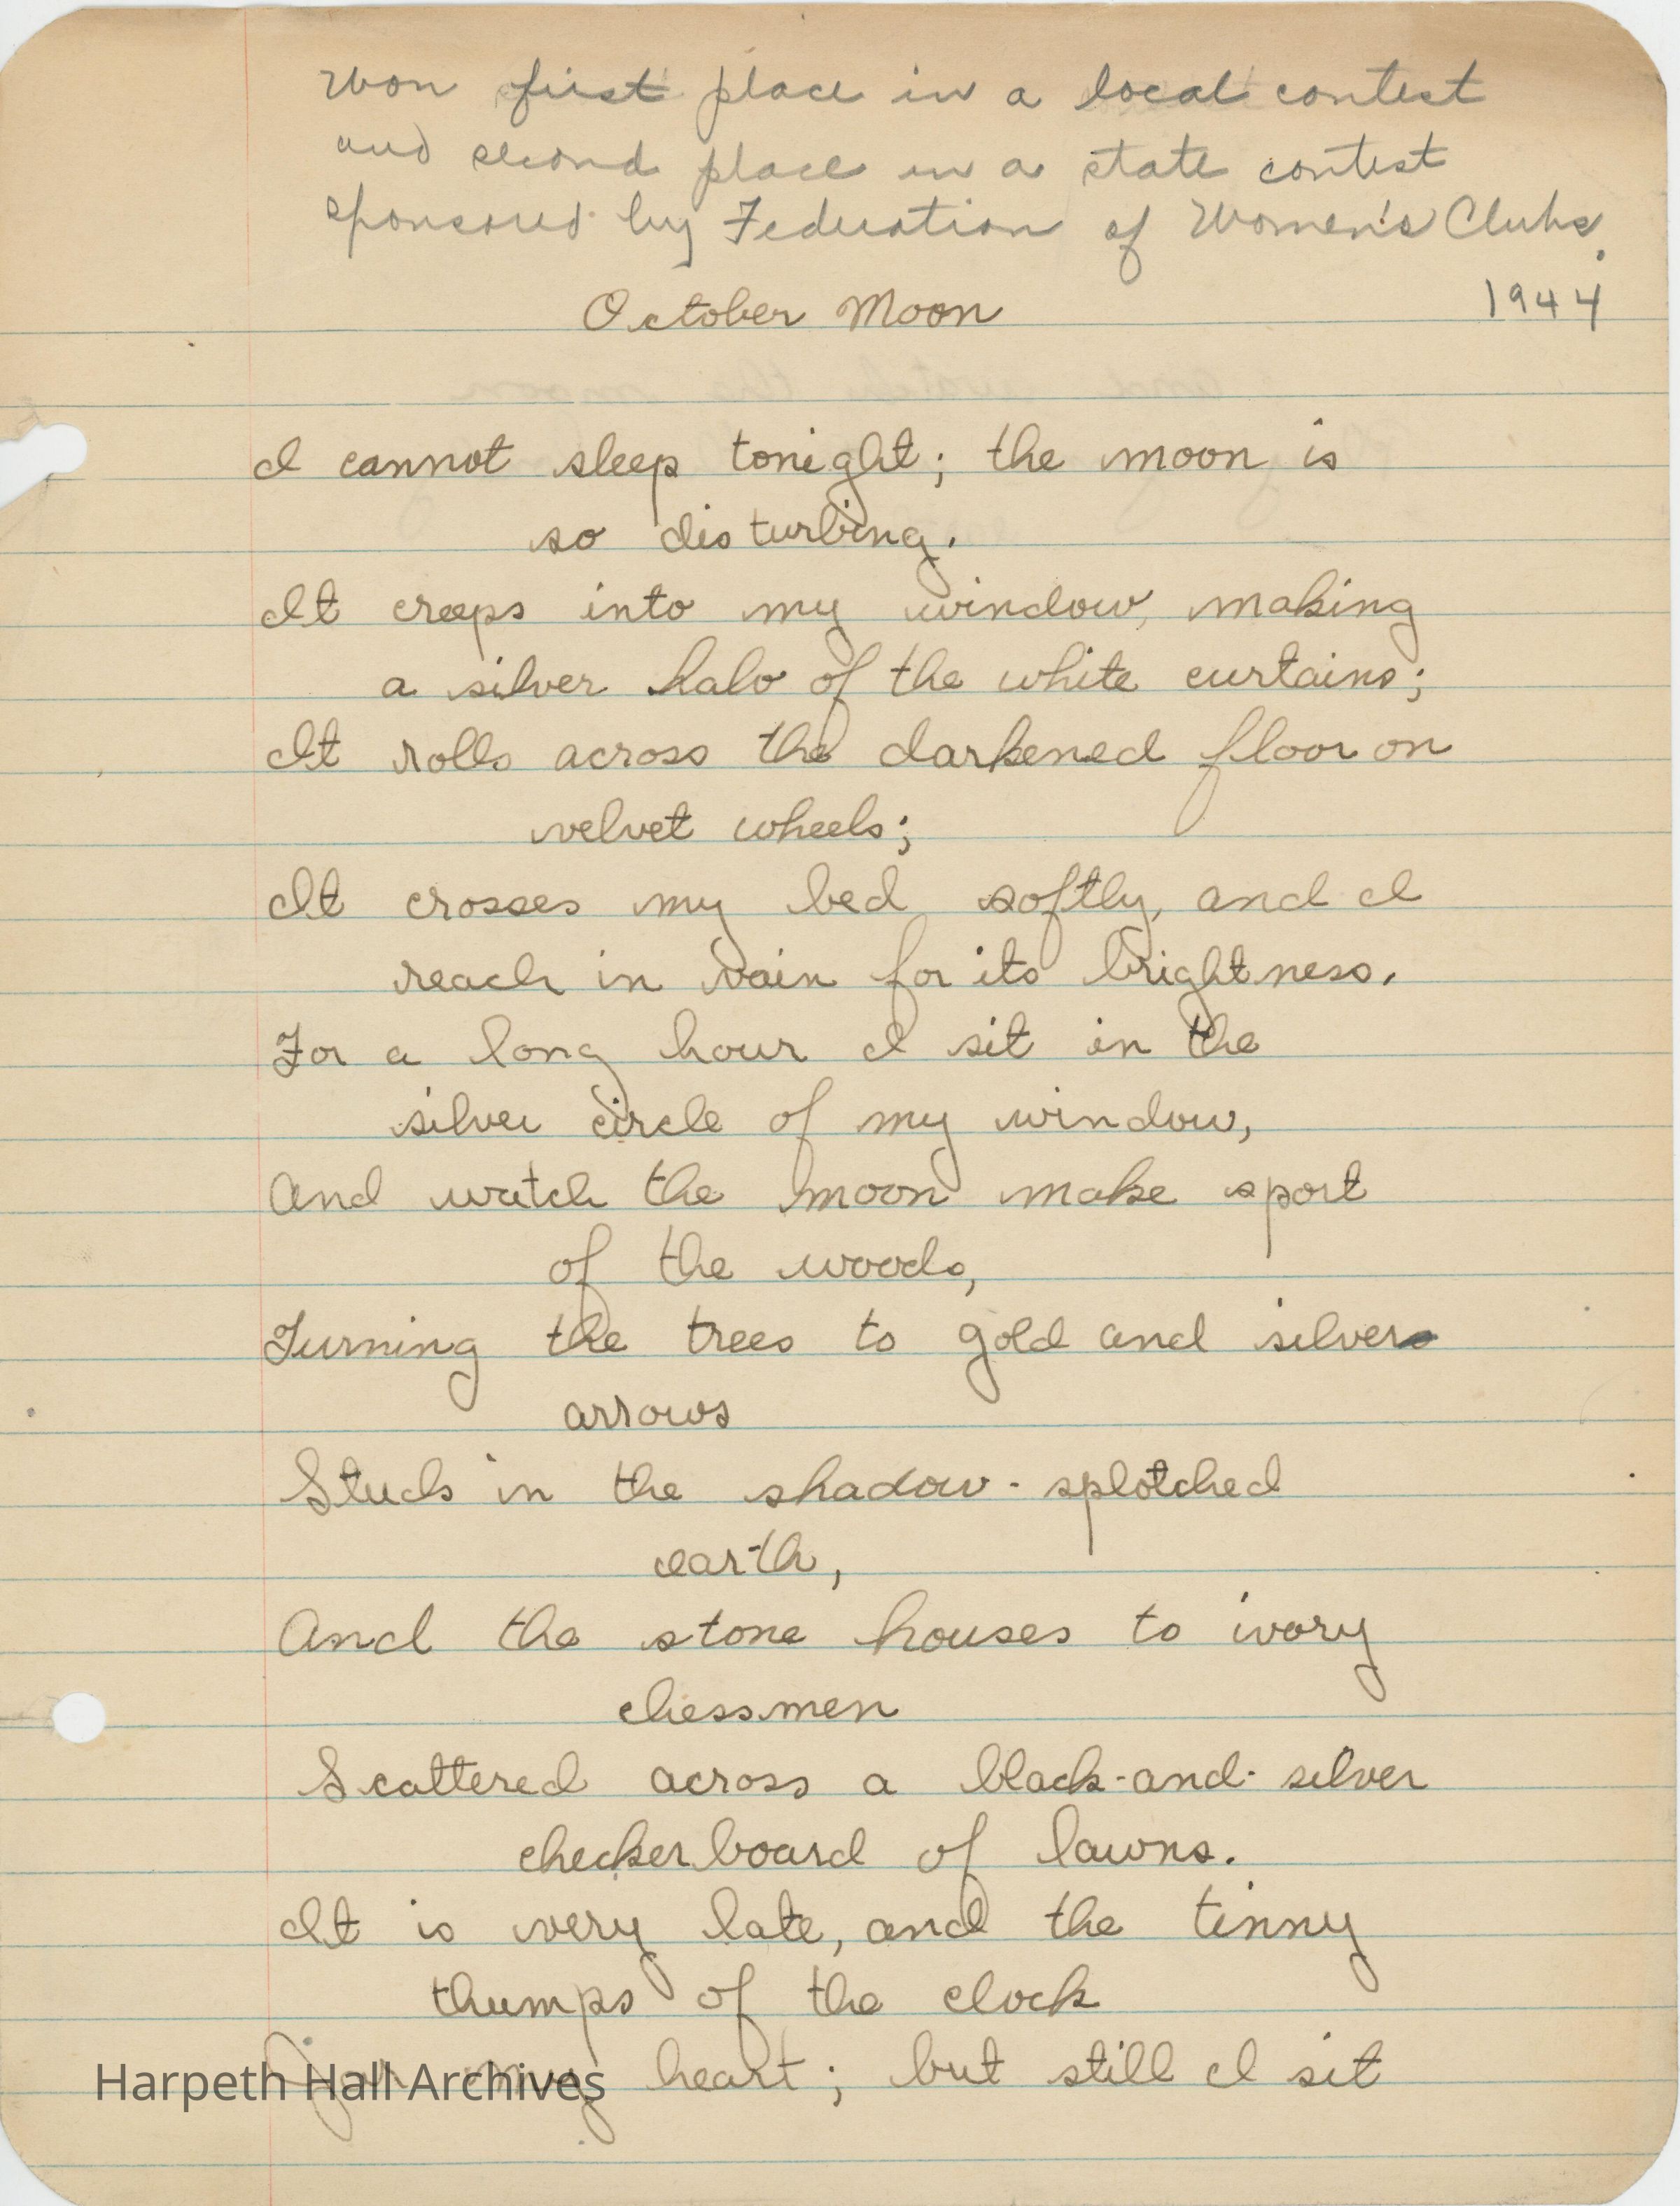 Won first place in a local contest
and second place in a state contest
sponsored by Federation of Women's Clubs.
1944
October Moon
I cannot sleep tonight; the moon is
so disturbing.
It creeps into my window, making
a silver halo of the white curtains;
It rolls across the darkened floor on
velvet wheels;
It crosses my bed softly, and I
reach in vain for its brightness.
For a long hour I sit in the
silver circle of my window,
And watch the moon make sport
of the woods,
Turning the trees to gold and silver
arrows
Stuck in the shadow-splotched
earth,
And the stone houses to ivory
chessmen
Scattered across a black-and-silver
checkerboard of lawns.
It is very late, and the tinny
thumps of the clock
Jar my heart; but still I sit
Harpeth Hall Archives